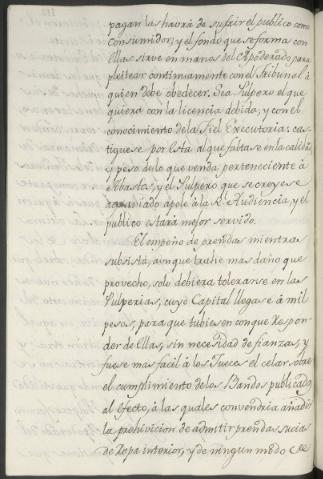 pagan las havrá de sufrir el publico como
Consumidor; y el fondo que se forma con
ellas sirve en manos del Apoderado, para
pleitear continuamente con el Tribunal á
quien debe obedecer. Sea Pulpero el que
quiera con la licencia debida, y con el
conocimiento de la Fiel Executoria: cas-
tiguese por esta al que falta se en la calidad,
y peso de lo que venda, perteneciente á
Abastos, y el Pulpero que se creyese
agraviado apele á la Rl. Audiencia, y el
publico estará mejor servido.
El empeño de prendas mientras
subsista, aunque trahe mas daño que
provecho, solo debiera tolerarse en las
Pulperias, cuyo Capital llegase á mil
pesos, para que tubiesen con que respon-
der de ellas, sin necesidad de fianzas, y
fuese mas facil á los Jueces el celar sobre
el cumplimiento de los Bandos publicados
al efecto, á las quales convendria añadir
la prohivicion de admitir prendas sucias
de Ropa interior, y de ningun modo